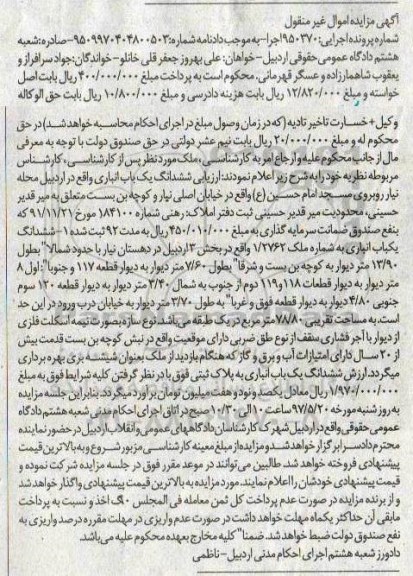 آگهی مزایده اموال غیر منقول
شماره پرونده اجرایی: ۹۵۰۳۷۰اجرا- به موجب دادنامه شماره: ۹۵۰۹۹۷۰۴۰۴۸۰۰۵۰۳-صادره: شعبه
هشتم دادگاه عمومی حقوقی اردبیل-خواهان: علی بهروز جعفر قلی خانلو-خواندگان: جواد سرافراز و
یعقوب شاهمارزاده و عسگر قهرمانی. محکوم است به پرداخت مبلغ ۴۰۰/۰۰۰/۰۰۰ ریال بابت اصل
خواسته و مبلغ ۱۲/۸۲۰/۰۰۰ ریال بابت هزینه دادرسی و مبلغ ۱۰/۸۰۰/۰۰۰ ریال بابت حق الوکاله
وکیل+ خسارت تاخیر تادیه (که در زمان وصول مبلغ در اجرای احکام محاسبه خواهد شد) در حق
محکوم له و مبلغ ۲۰/۰۰۰/۰۰۰ ریال بابت نیم عشر دولتی در حق صندوق دولت با توجه به معرفی
مال از جانب محکوم علیه و ارجاع امر به کارشناسی، «ملک مورد نظر پس از کارشناسی»، کارشناس
مربوطه نظریه خود را به شرح زیر اعلام نمودند: ارزیابی ششدانگ یک باب انباری واقع در اردبیل محله
نیار روبروی مسجد امام حسین (ع) واقع در خیابان اصلی نیار و کوچه بن بست متعلق به میر قدیر
حسینی، محدودیت میر قدیر حسینی ثبت دفتر املاک: رهنی شماره ۱۸۴۱۰۰ مورخ ۹۱/۱۱/۲۱ که
بنفع صندوق ضمانت سرمایه گذاری به مبلغ ۴۵۰/۰۱۰/۰۰۰ ریال به مدت ۹۲ ثبت شده ۱-ششدانگ
یکباب انباری به شماره ملک ۱/۲۷۶۲ واقع در بخش ۳ اردبیل در دهستان نیار با حدود شمالا" بطول
۱۳/۹۰ متر دیوار به کوچه بن بست و شرقا" بطول ۷/۶۰ متر دیوار به دیوار قطعه ۱۱۷ و جنوبا": اول ۸
متر دیوار به دیوار قطعات ۱۱۸ و ۱۱۹ دوم از جنوب به شمال ۳/۴۰ متر دیوار به دیوار قطعه ۱۲۰ سوم
جنوبی ۴/۸۰ دیوار به دیوار قطعه فوق و غربا" به طول ۳/۷۰ متر دیوار به خیابان درب ورود در این حد
است. به مساحت تقریبی ۷۸/۸۰ متر مربع در یک طبقه می باشد. نوع سازه بصورت نیمه اسکلت فلزی
از دیوار با آجر فشاری سقف از نوع طق ضربی دارای موقعیت واقع در نبش کوچه بن بست قدمت بیش
از ۲۰ سال دارای امتیازات آب و برق و گاز که هنگام بازدید از ملک بعنوان شیشه بری بهره برداری
میگردد. ارزش ششدانگ یک باب انباری به پلاک ثبتی فوق با در نظر گرفتن کلیه شرایط فوق به مبلغ
۱/۹۷۰/۰۰۰/۰۰۰ ریال معادل یکصد و نود و هفت میلیون تومان بر آورد میگردد. بنابراین جلسه مزایده
به روز شنبه مورخه ۹۷/۵/۲۰ ساعت ۱۰ الی ۱۰/۳۰ صبح در اتاق اجرای احکام مدنی شعبه هشتم دادگاه
عمومی حقوقی واقع در اردبیل شهرک کارشناسان دادگاههای عمومی و انقلاب اردبیل در حضور نماینده
محترم دادسرا برگزار خواهد شد و مزایده از مبلغ معینه کارشناسی مزبور شروع و به بالاترین قیمت
پیشنهادی فروخته خواهد شد. طالبین می توانند در موعد مقرر فوق در جلسه مزایده شرکت نموده و
قیمت پیشنهادی خودشان را اعلام نمایند. مورد مزایده به بالاترین قیمت پیشنهادی واگذار خواهد شد
و از برنده مزایده در صورت عدم پرداخت کل ثمن معامله فی المجلس ۱۰٪ اخذ و نسبت به پرداخت
مابقی آن حداکثر یکماه مهلت خواهد داشت در صورت عدم واریزی در مهلت مقرره درصد واریزی به
نفع صندوق دولت ضبط خواهد شد. ضمنا" کلیه مخارج بعهده محکوم علیه می باشد.
دادورز شعبه هشتم اجرای احکام مدنی اردبیل- ناظمی